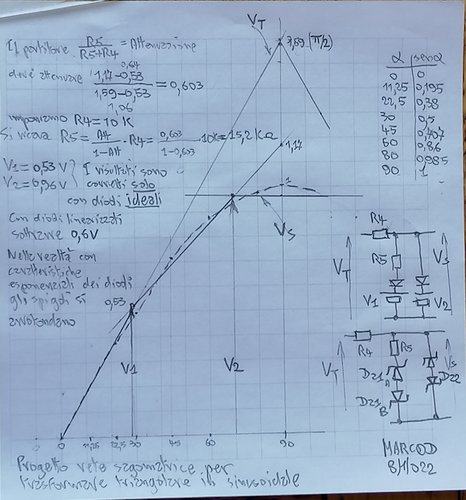 Il partitore R5/(R5+R4) = Attenuazione
0,64
deve attenuare (1,17-0,53)/(1,59-0,53) = 0,603
1,06
imponiamo R4=10K
Si ricava R5 = Att/(1-Att) · R4 = 0,603/(1-0,603) · 10K = 15,2 KΩ
V1 = 0,53 V
V2 = 0,96 V
I risultati sono
corretti solo
con diodi ideali
Con diodi linearizzati
sottrarre 0,6V
Nella realtà con
caratteristiche
esponenziali dei diodi
gli spigoli si
arrotondano
VT
1,59 (π/2)
1,17
1
VS
0,53
V1
V2
0
11,25
22,5
30
45
60
90
α senα
0 0
11,25 0,195
22,5 0,38
30 0,5
45 0,707
60 0,86
80 0,985
90 1
R4
VT
R5
VS
V1
V2
R4
R5
VT
DZ1A
DZ1B
VS
DZ2
MARCOD
8/1/022
Progetto rete sagomatrice per
trasformare triangolare in sinusoidale